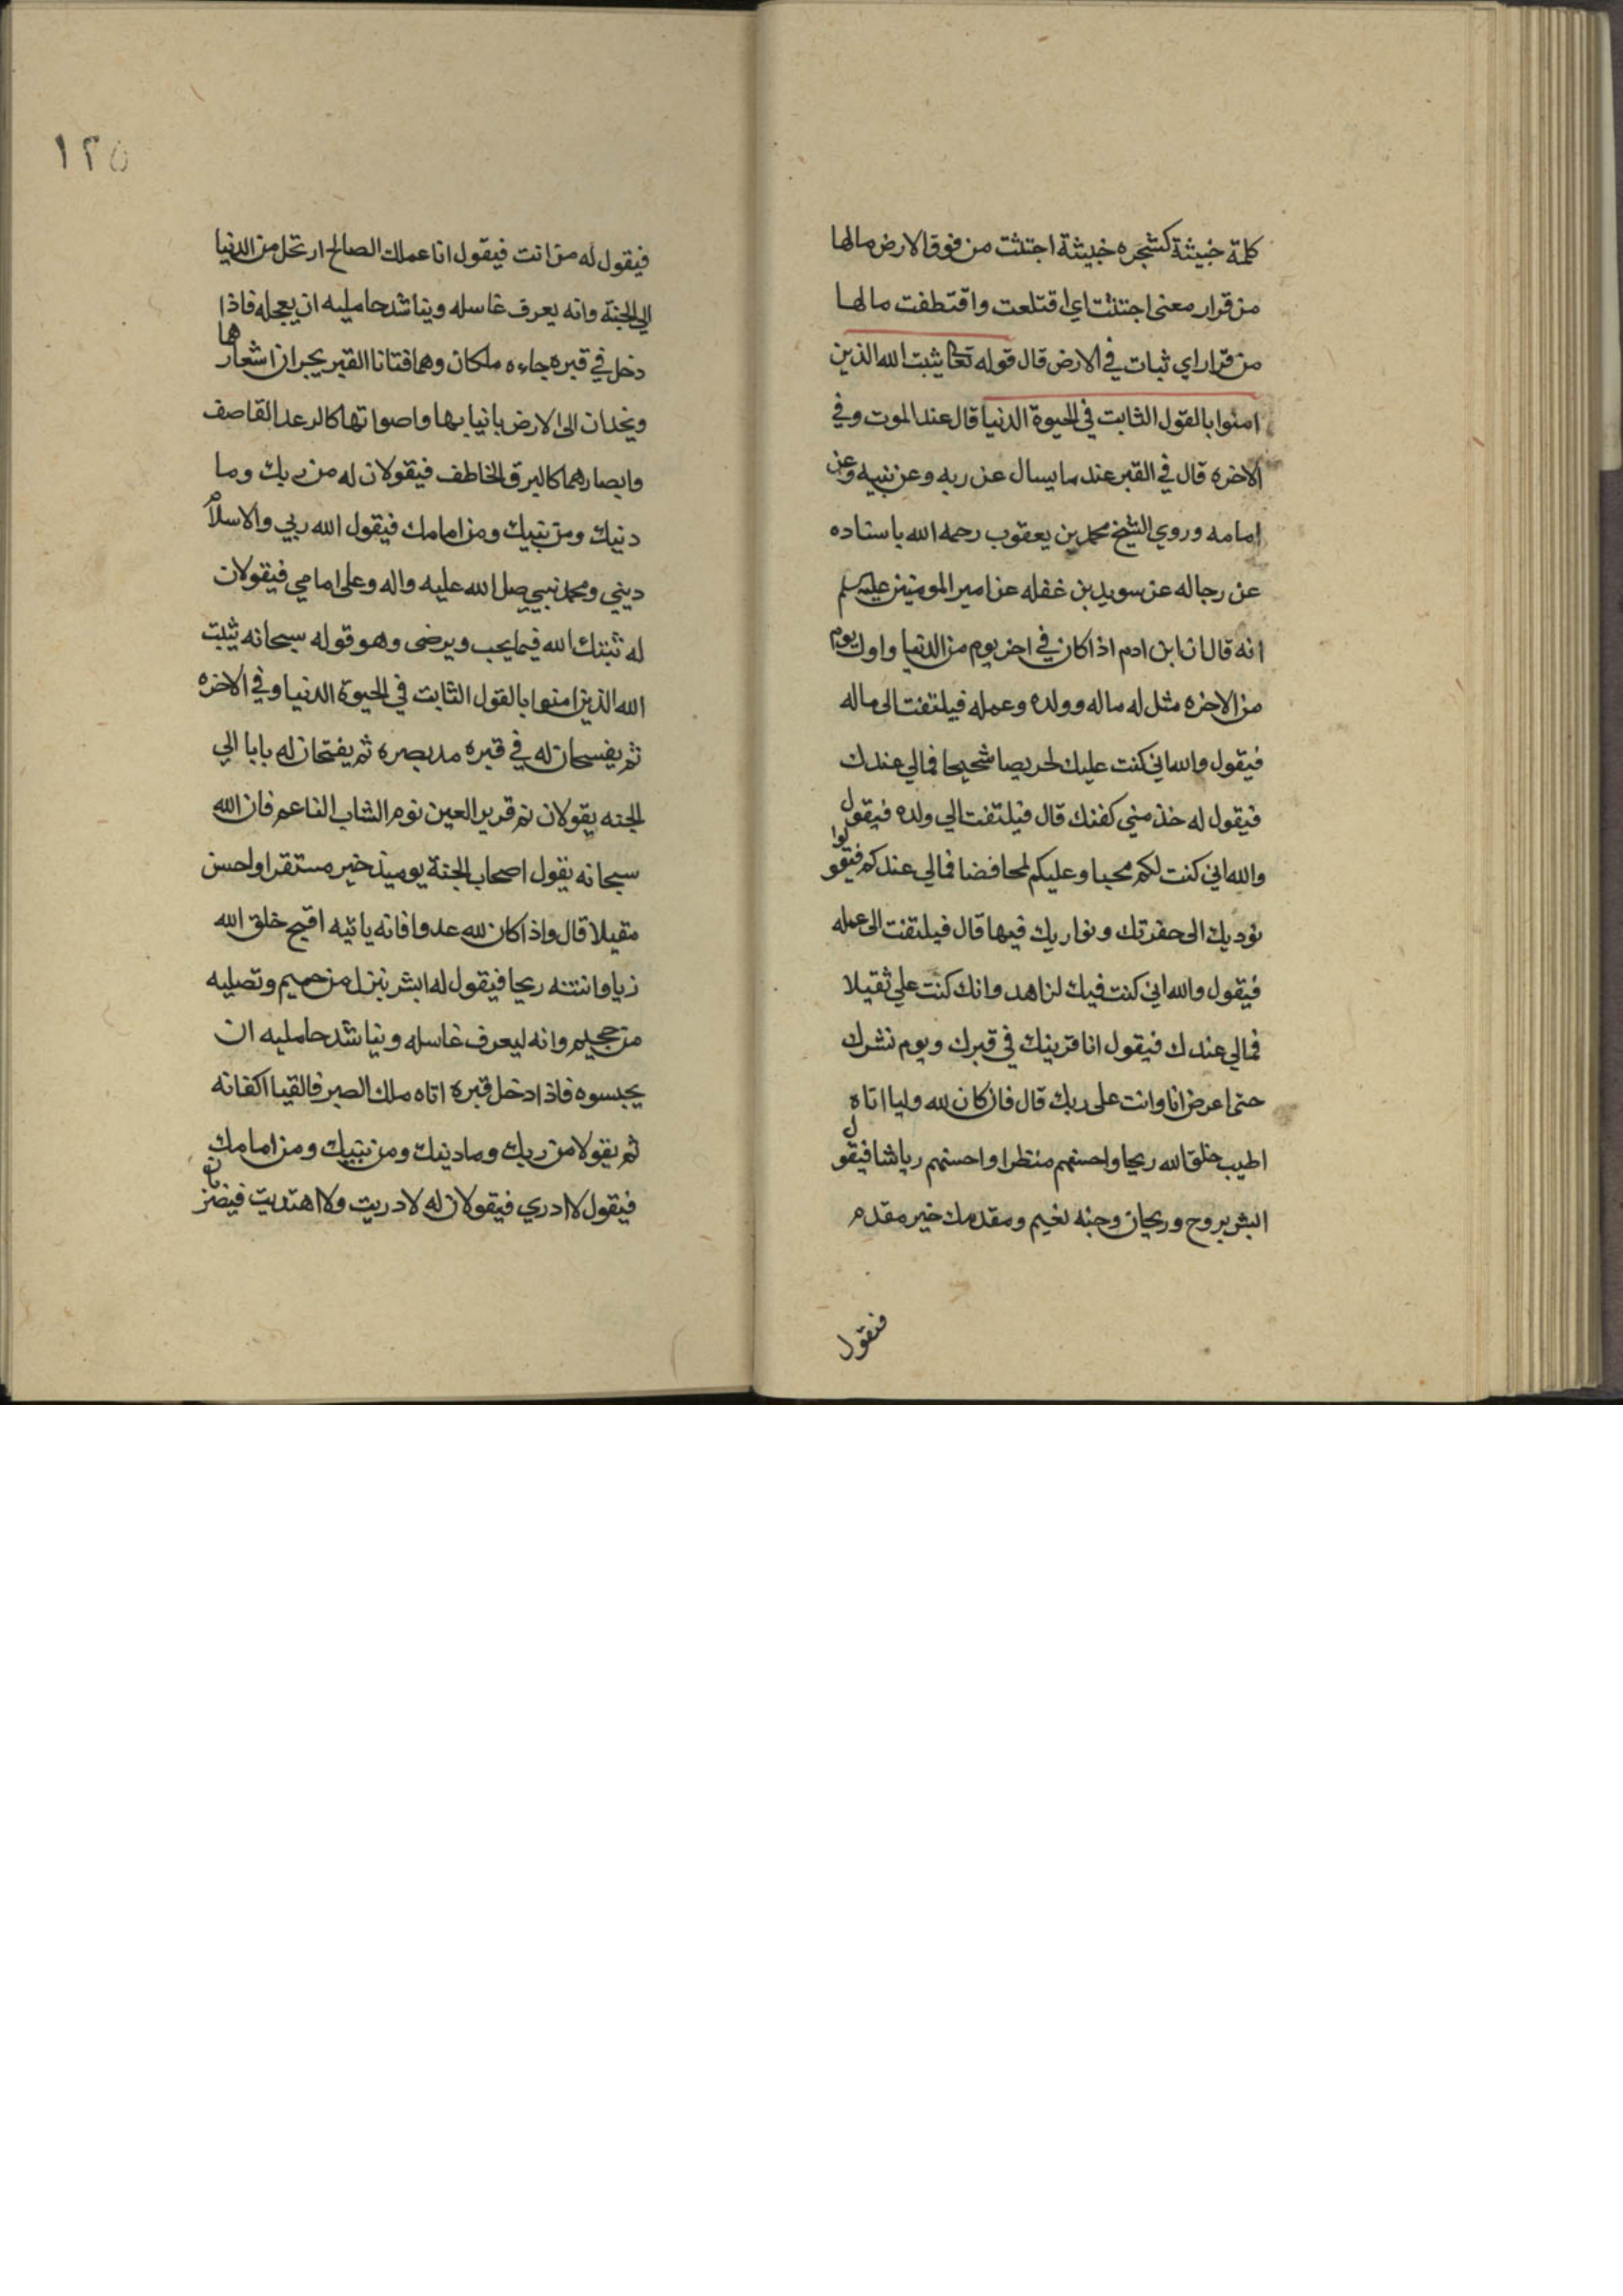 كلمة خبيثة كشجره خبيثة اجتثت من فوق الارض مالها
من قرار معنى اجتثت اي اقتلعت واقتطفت مالها
من قرار اي ثبات في الارض قال قوله تعا يثبت الله الذين
امنوا بالقول الثابت في الحيوة الدنيا قال عند الموت وفي
الاخره قال في القبر عند ما يسال عن ربه وعن نبيه وعن
امامه وروي الشيخ محمد بن يعقوب رحمه الله باسناده
عن رجاله عن سويد بن غفله عن امير المومنين عليه سلم
انه قال ان ابن ادم اذا كان في اخر يوم من الدنيا واول يوم
من الاخره مثل له ماله وولده وعمله فيلتفت الى ماله
فيقول والله اني كنت عليك لحريصا شحيحا فمالي عندك
فيقول له خذ مني كفنك قال فيلتفت الي ولده فيقول
والله اني كنت لكم محبا وعليكم لمحافضا فمالي عندكم فيقولوا
نوديك الى حفرتك ونواريك فيها قال فيلتفت الى عمله
فيقول والله اني كنت فيك لزاهد وانك كنت علي ثقيلا
فمالي عندك فيقول انا قرينك في قبرك ويوم نشرك
حتى اعرض انا وانت على ربك قال فان كان لله وليا اتاه
اطيب خلق الله ريحا واحسنهم منظرا واحسنهم رياشا فيقول
ابشر بروح وريحان وجنه نعيم ومقدمك خير مقدم
فيقول
١٢٥
فيقول له من انت فيقول انا عملك الصالح ارتحل من الدنيا
الي الجنة وانه يعرف غاسله ويناشد حامليه ان يعجله فاذا
دخل في قبره جاءه ملكان وهما فتانا القبر يجران اشعارها
ويخدان الى الارض بانيابها واصواتها كالرعد القاصف
وابصارهما كالبرق الخاطف فيقولان له من ربك وما
دنيك ومن نبيك ومن امامك فيقول الله ربي والاسلام
ديني ومحمد نبيي صل الله عليه واله وعلى امامي فيقولان
له ثبتك الله فيما يحب ويرضى وهو قوله سبحانه يثبت
الله الذين امنوا بالقول الثابت في الحيوة الدنيا وفي الاخره
ثم يفسحان له في قبره مد بصره ثم يفتحان له بابا الي
الجنه يقولان نم قرير العين نوم الشاب الناعم فان الله
سبحانه يقول اصحاب الجنة يوميذ خير مستقرا واحسن
مقيلا قال واذا كان لله عدوا فانه ياتيه اقبح خلق الله
زيا وانتنه ريحا فيقول له ابشر بنزل من حميم وتصليه
من جحيم وانه ليعرف غاسله ويناشد حامليه ان
يحبسوه فاذا دخل قبره اتاه ملك الصبر فالقيا اكفانه
ثم يقولا من ربك وما دينك ومن نبيك ومن امامك
فيقول لا ادري فيقولان له لا دريت ولا اهتديت فيضربان